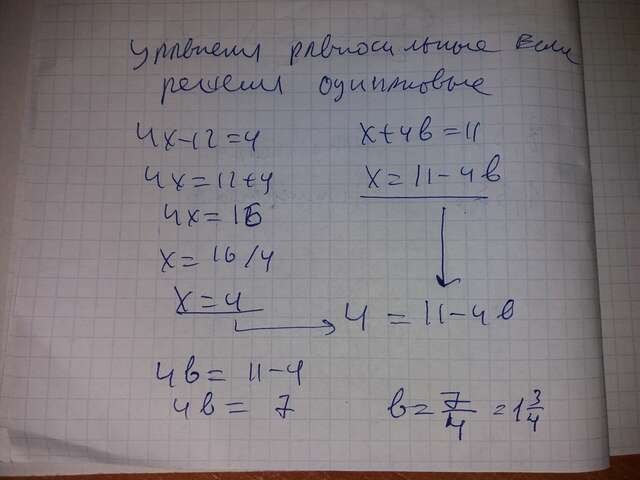 Уравнения равносильные если
решения одинаковые
4x-12=4
4x=12+4
4x=16
x=16/4
x=4
x+4b=11
x=11-4b
4=11-4b
4b=11-4
4b=7
b=7/4=1 3/4